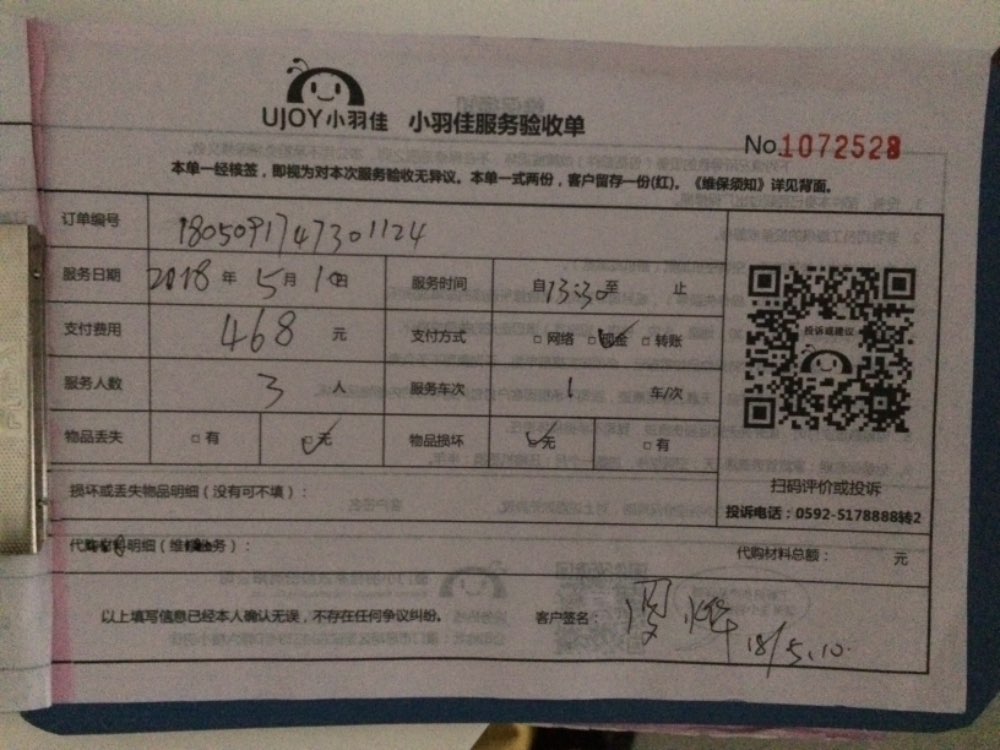 UJOY小羽佳 小羽佳服务验收单
No.1072528
本单一经核签，即视为对本次服务验收无异议。本单一式两份，客户留存一份(红)。《维保须知》详见背面。
订单编号 1805091747301124
服务日期 2018 年 5 月 10 日 服务时间 自 13:30 至 止
支付费用 468 元 支付方式 □网络 □现金 □转账
服务人数 3 人 服务车次 1 车/次
物品丢失 □有 □无 物品损坏 □无 □有
投诉或建议
扫码评价或投诉
损坏或丢失物品明细（没有可不填）：
投诉电话：0592-5178888转2
代购材料明细（维修服务）： 代购材料总额： 元
以上填写信息已经本人确认无误，不存在任何争议纠纷。 客户签名：
18/5.10.